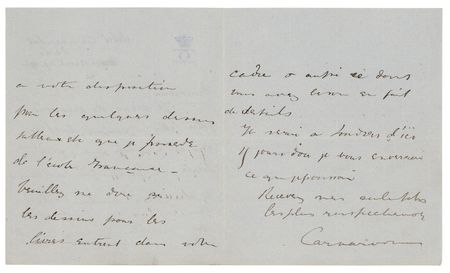 a votre disposition
pour les quelques dessins
que je possede
de l'école française -
Veuillez me dire si
les dessins pour les
livres entrent dans votre
cadre & aussi ce dont
vous avez besoin en fait
de details
Je serai a Londres d'ici
jours d'ou je vous enverrai
ce que je pourrai
Recevez mes salutations
les plus respectueuses
Carnarvon